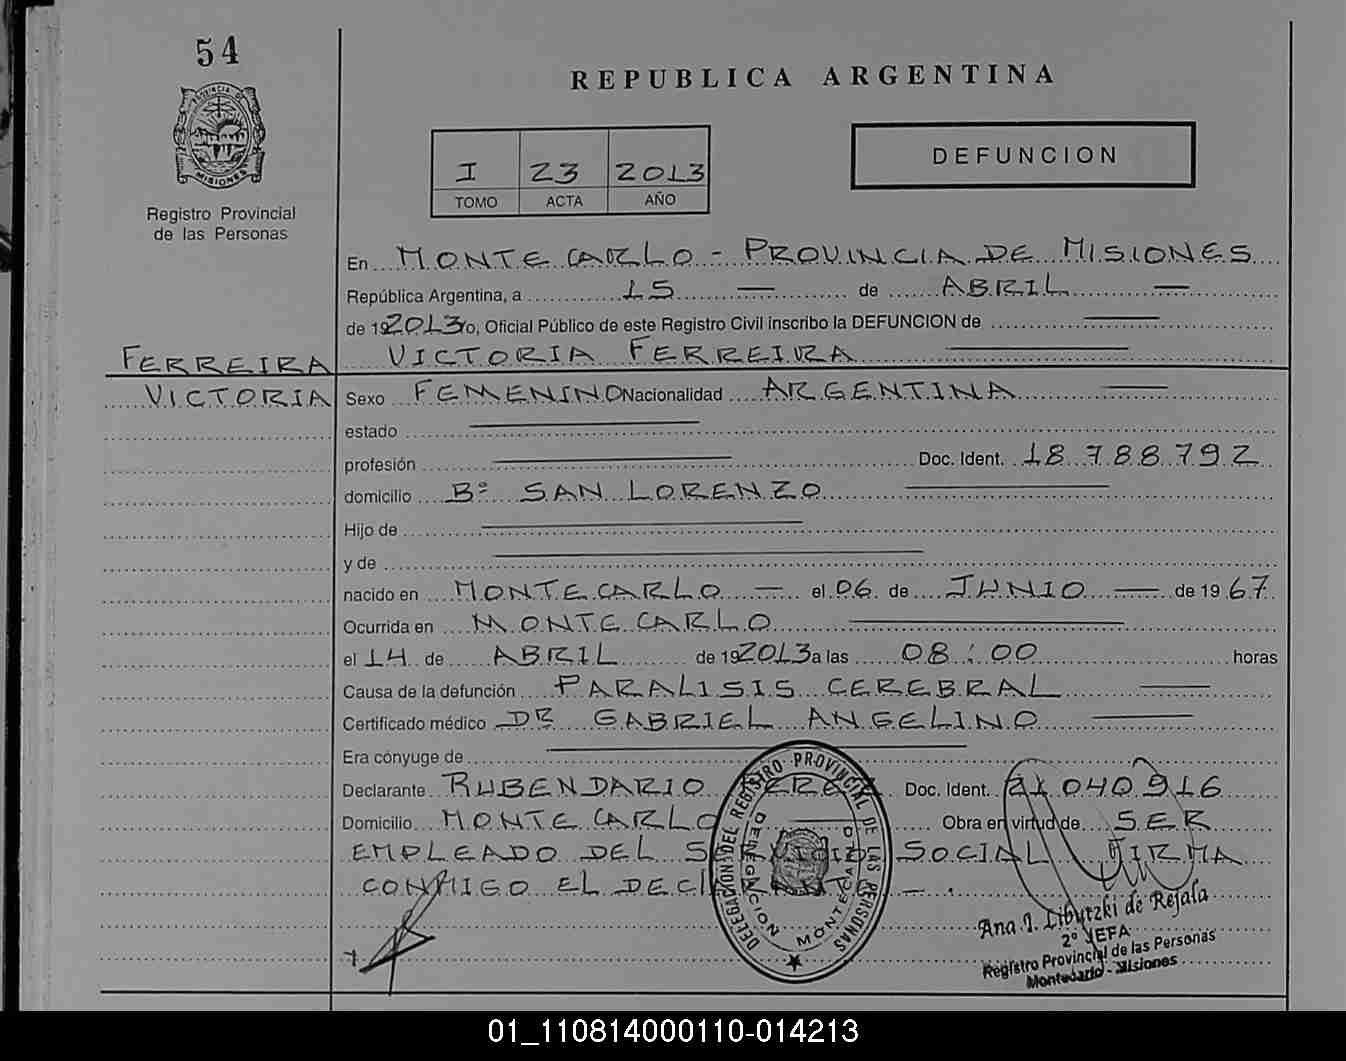 54
PROVINCIA DE
MISIONES
Registro Provincial
de las Personas
REPUBLICA ARGENTINA
I 23 2013
TOMO ACTA AÑO
DEFUNCION
En MONTECARLO - PROVINCIA DE MISIONES
República Argentina, a 15 — de ABRIL —
de 192013 Yo, Oficial Público de este Registro Civil inscribo la DEFUNCION de —
FERREIRA VICTORIA FERREIRA —
VICTORIA Sexo FEMENINO Nacionalidad ARGENTINA —
estado —
profesión — Doc. Ident. 18.788.792
domicilio Bº SAN LORENZO —
Hijo de —
y de —
nacido en MONTECARLO — el 06 de JUNIO — de 1967
Ocurrida en MONTECARLO —
el 14 de ABRIL de 192013 a las 08:00 horas
Causa de la defunción PARALISIS CEREBRAL —
Certificado médico DR GABRIEL ANGELINO —
Era cónyuge de —
Declarante RUBEN DARIO Doc. Ident. 21 040916
Domicilio MONTECARLO — Obra en virtud de SER
EMPLEADO DEL SERVICIO SOCIAL FIRMA
CONMIGO EL DECLARANTE — .
DELEGACION DEL REGISTRO PROVINCIAL DE LAS PERSONAS
DELEGACION MONTECARLO
Ana I. Libutzki de Rejala
2º JEFA
Registro Provincial de las Personas
Montecarlo - Misiones
01_110814000110-014213